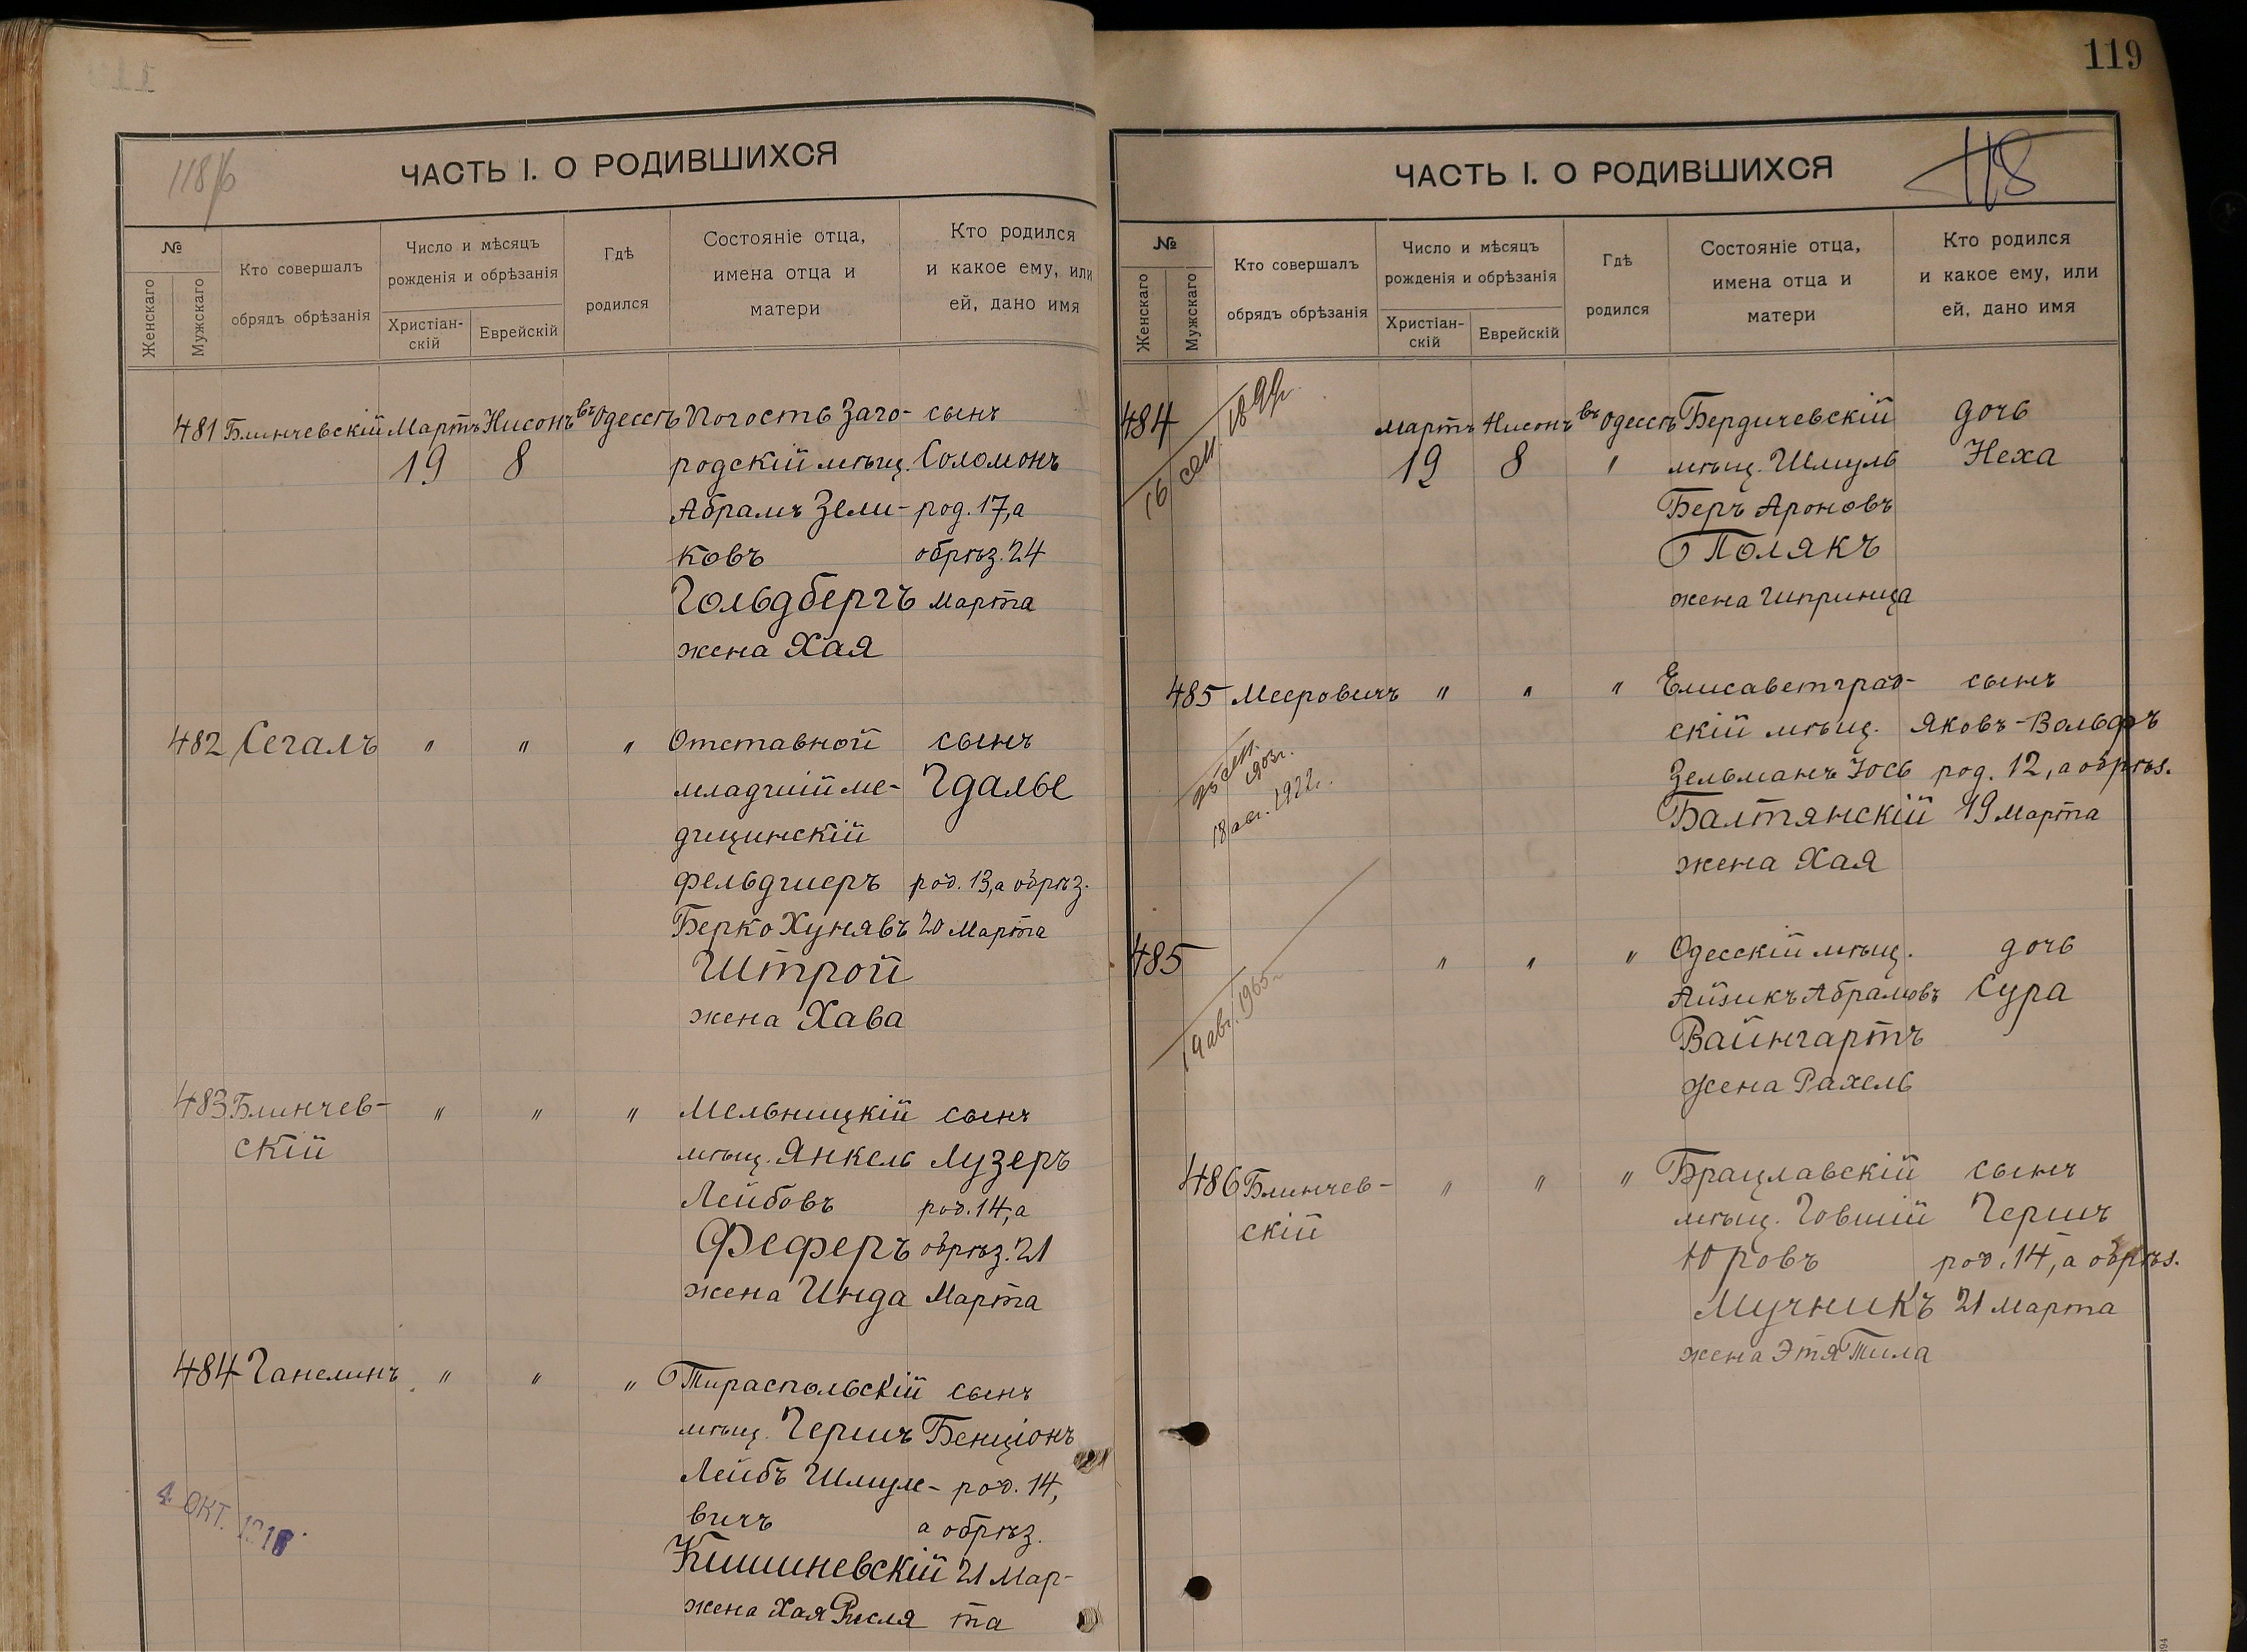 118/б
ЧАСТЬ I. О РОДИВШИХСЯ
№
Женскаго
Мужскаго
Кто совершалъ
обрядъ обрѣзанія
Число и мѣсяцъ
рожденія и обрѣзанія
Христіан-
скій
Еврейскій
Гдѣ
родился
Состояніе отца,
имена отца и
матери
Кто родился
и какое ему, или
ей, дано имя
481 Блинчевскій Мартъ Нисонъ въ Одессѣ Погостъ Заго- сынъ
19 8 родскій мѣщ. Соломонъ
Абрамъ Зели- род. 17, а
ковъ обрѣз. 24
Гольдбергъ Марта
жена Хая
482 Сегалъ " " " Отставной сынъ
младшій ме- Гдалье
дицинскій
фельдшеръ род. 13, а обрѣз.
Берко Хунявъ 20 Марта
Штрой
жена Хава
483 Блинчев- " " " Мельницкій сынъ
скій мѣщ. Янкель Лузеръ
Лейбовъ род. 14, а
Феферъ обрѣз. 21
жена Инда Марта
484 Ганелинъ " " " Тираспольскій сынъ
мѣщ. Гершъ Бенціонъ
Лейбъ Шмуле- род. 14,
вичъ а обрѣз.
Кишиневскій 21 Мар-
жена Хая Рисля та
4 ОКТ.
119
ЧАСТЬ I. О РОДИВШИХСЯ
118
№
Женскаго
Мужскаго
Кто совершалъ
обрядъ обрѣзанія
Число и мѣсяцъ
рожденія и обрѣзанія
Христіан-
скій
Еврейскій
Гдѣ
родился
Состояніе отца,
имена отца и
матери
Кто родился
и какое ему, или
ей, дано имя
484 Мартъ Нисонъ въ Одессѣ Бердичевскій дочь
19 8 " мѣщ. Шмуль Неха
Беръ Ароновъ
Полякъ
жена Шпринца
16 сен. 189
485 Мееровичъ " " " Елисаветград- сынъ
скій мѣщ. Яковъ-Вольфъ
Зельманъ Іось род. 12, а обрѣз.
Балтянскій 19 Марта
жена Хая
25 сен.
1903г.
18 авг. 1922г.
485 " " " Одесскій мѣщ. дочь
Айзикъ Абрамовъ Сура
Вайнгартъ
жена Рахель
19 авг. 1965г
486 Блинчев- " " " Брацлавскій сынъ
скій мѣщ. Говшій Гершъ
Юровъ род. 14, а обрѣз.
Мучникъ 21 Марта
жена Этя Тила